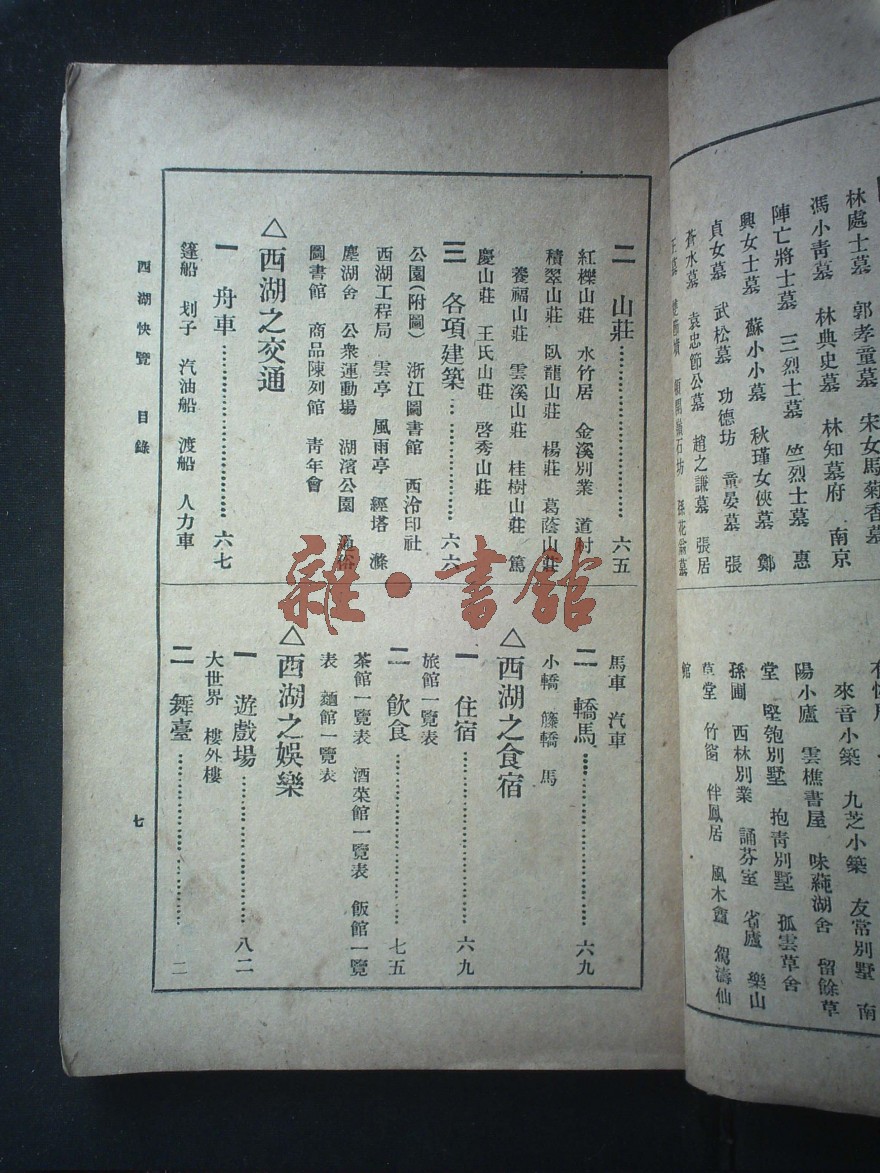 林處士墓 郭孝童墓 宋女馬菊香墓
馮小青墓 林典史墓 林知墓府 南京
陣亡將士墓 三烈士墓 竺烈士墓 惠
興女士墓 蘇小小墓 秋瑾女俠墓 鄭
貞女墓 武松墓 功德坊 童晏墓 張
蒼水墓 袁忠節公墓 趙之謙墓 張居
來音小築 九芝小築 友常別墅 南
陽小廬 雲樵書屋 味蒓湖舍 留餘草
堂 堅匏別墅 抱青別墅 孤雲草舍
孫圃 西林別業 誦芬室 省廬 樂山
草堂 竹窗 伴鳳居 風木盦 駕濤仙
館
二 山莊………………六五
紅櫟山莊 水竹居 金溪別業 道村
積翠山莊 臥龍山莊 楊莊 葛蔭山莊
養福山莊 雲溪山莊 桂樹山莊 篤
慶山莊 王氏山莊 啓秀山莊
三 各項建築………………六六
公園(附圖) 浙江圖書館 西泠印社
西湖工程局 雲亭 風雨亭 經塔 滌
塵湖舍 公衆運動場 湖濱公園 通俗
圖書館 商品陳列館 青年會
△西湖之交通
一 舟車………………六七
篷船 划子 汽油船 渡船 人力車
馬車 汽車
二 轎馬………………六九
小轎 籐轎 馬
△西湖之食宿
一 住宿………………六九
旅館一覽表
二 飲食………………七五
茶館一覽表 酒菜館一覽表 飯館一覽
表 麵館一覽表
△西湖之娛樂
一 遊戲場………………八二
大世界 樓外樓
二 舞臺………………
西湖快覽 目錄
七
雜·書館